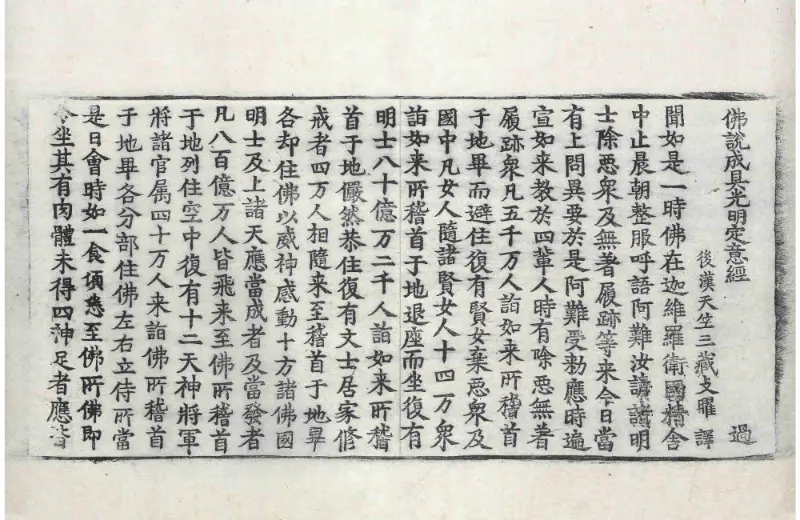 佛說成具光明定意經
過
後漢天竺三藏支曜 譯
聞如是一時佛在迦維羅衛國精舍
中止晨朝整服呼語阿難汝請諸明
士除惡衆及無著履跡等来今日當
有上問異要於是阿難受勑應時遍
宣如来教於四輩人時有除惡無著
履跡衆凡五千万人詣如来所稽首
于地畢而避住復有賢女棄惡衆及
國中凡女人隨諸賢女人十四万衆
詣如来所稽首于地退座而坐復有
明士八十億万二千人詣如来所稽
首于地儼然恭住復有文士居家修
戒者四万人相隨来至稽首于地畢
各却住佛以威神感動十方諸佛國
明士及上諸天應當成者及當發者
凡八百億万人皆飛来至佛所稽首
于地列住空中復有十二天神將軍
將諸官属四十万人来詣佛所稽首
于地畢各分部住佛左右立侍所當
是日會時如一食頃悉至佛所佛即
令坐其有肉體未得四神足者應皆